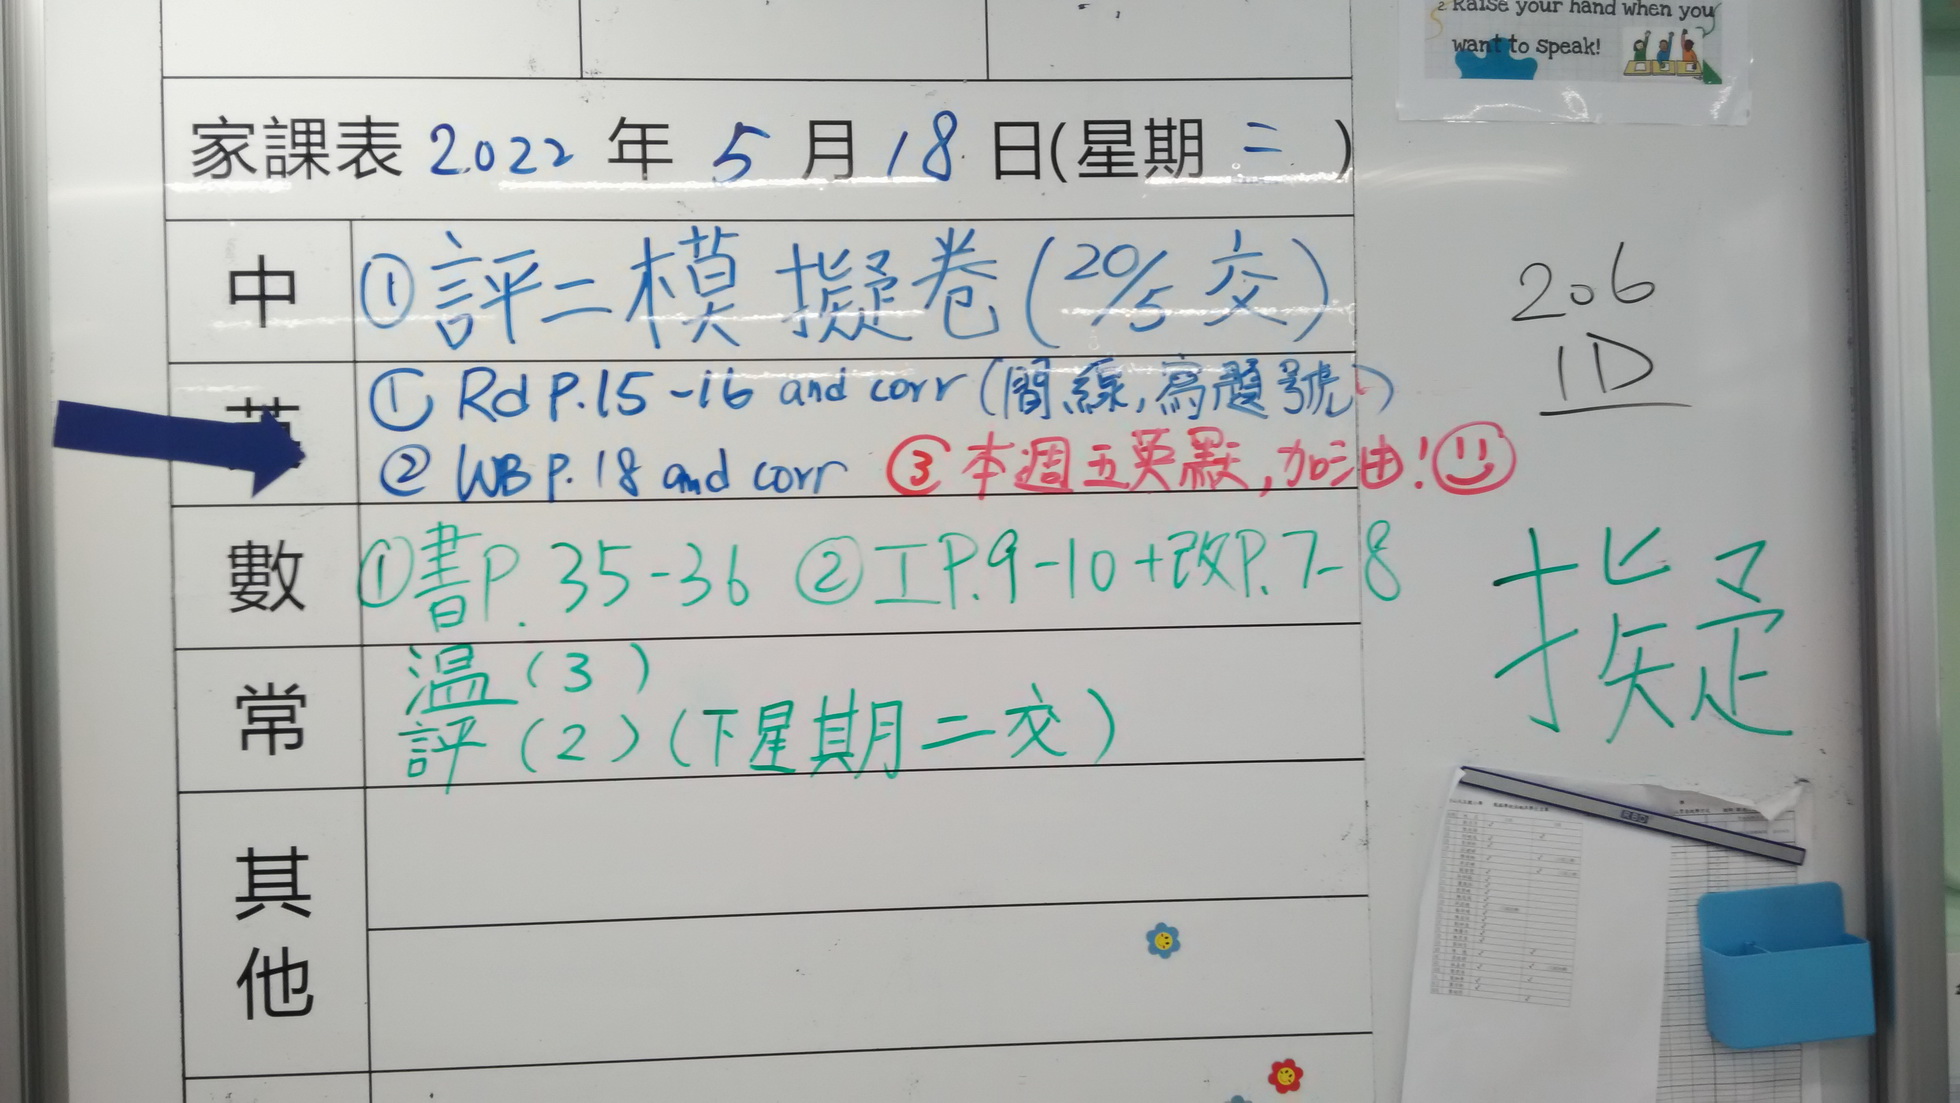 2 Raise your hand when you
want to speak!
家課表 2022 年 5 月 18 日(星期 二 )
中 ①評二模擬卷(20/5 交)
英 ① Rd P.15-16 and corr (間線,寫題號)
② WB P.18 and corr ③ 本週五英默,加油!
數 ①書P.35-36 ②工P.9-10+改P.7-8
常 溫(3)
評(2)(下星期二交)
其
他
206
1D
擬